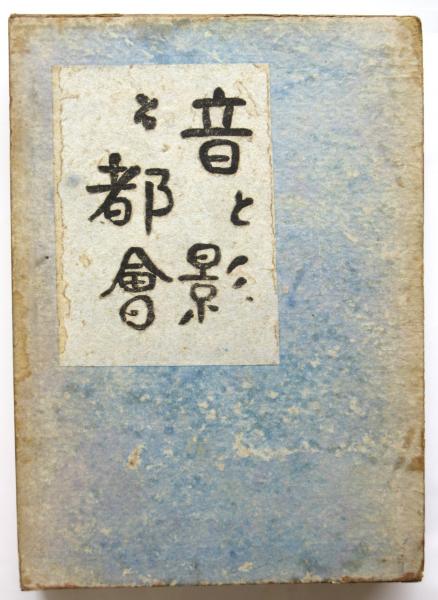 音と影
と都會